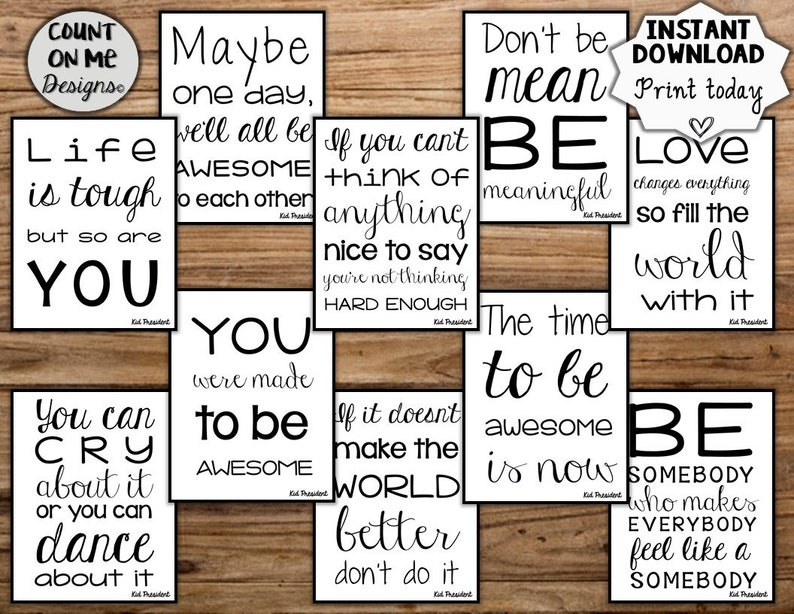 COUNT
ON ME
Designs©
Maybe
one day,
we'll all be
AWESOME
to each other
Kid President
Don't be
mean
BE
meaningful
Kid President
INSTANT
DOWNLOAD
Print today
Life
is tough
but so are
YOU
Kid President
If you can't
think of
anything
nice to say
you're not thinking
HARD ENOUGH
Kid President
LOVE
changes everything
so fill the
world
with it
Kid President
YOU
were made
to be
AWESOME
Kid President
The time
to be
awesome
is now
Kid President
You can
CRY
about it
or you can
dance
about it
Kid President
If it doesn't
make the
WORLD
better
don't do it
BE
SOMEBODY
who makes
EVERYBODY
feel like a
SOMEBODY
Kid President